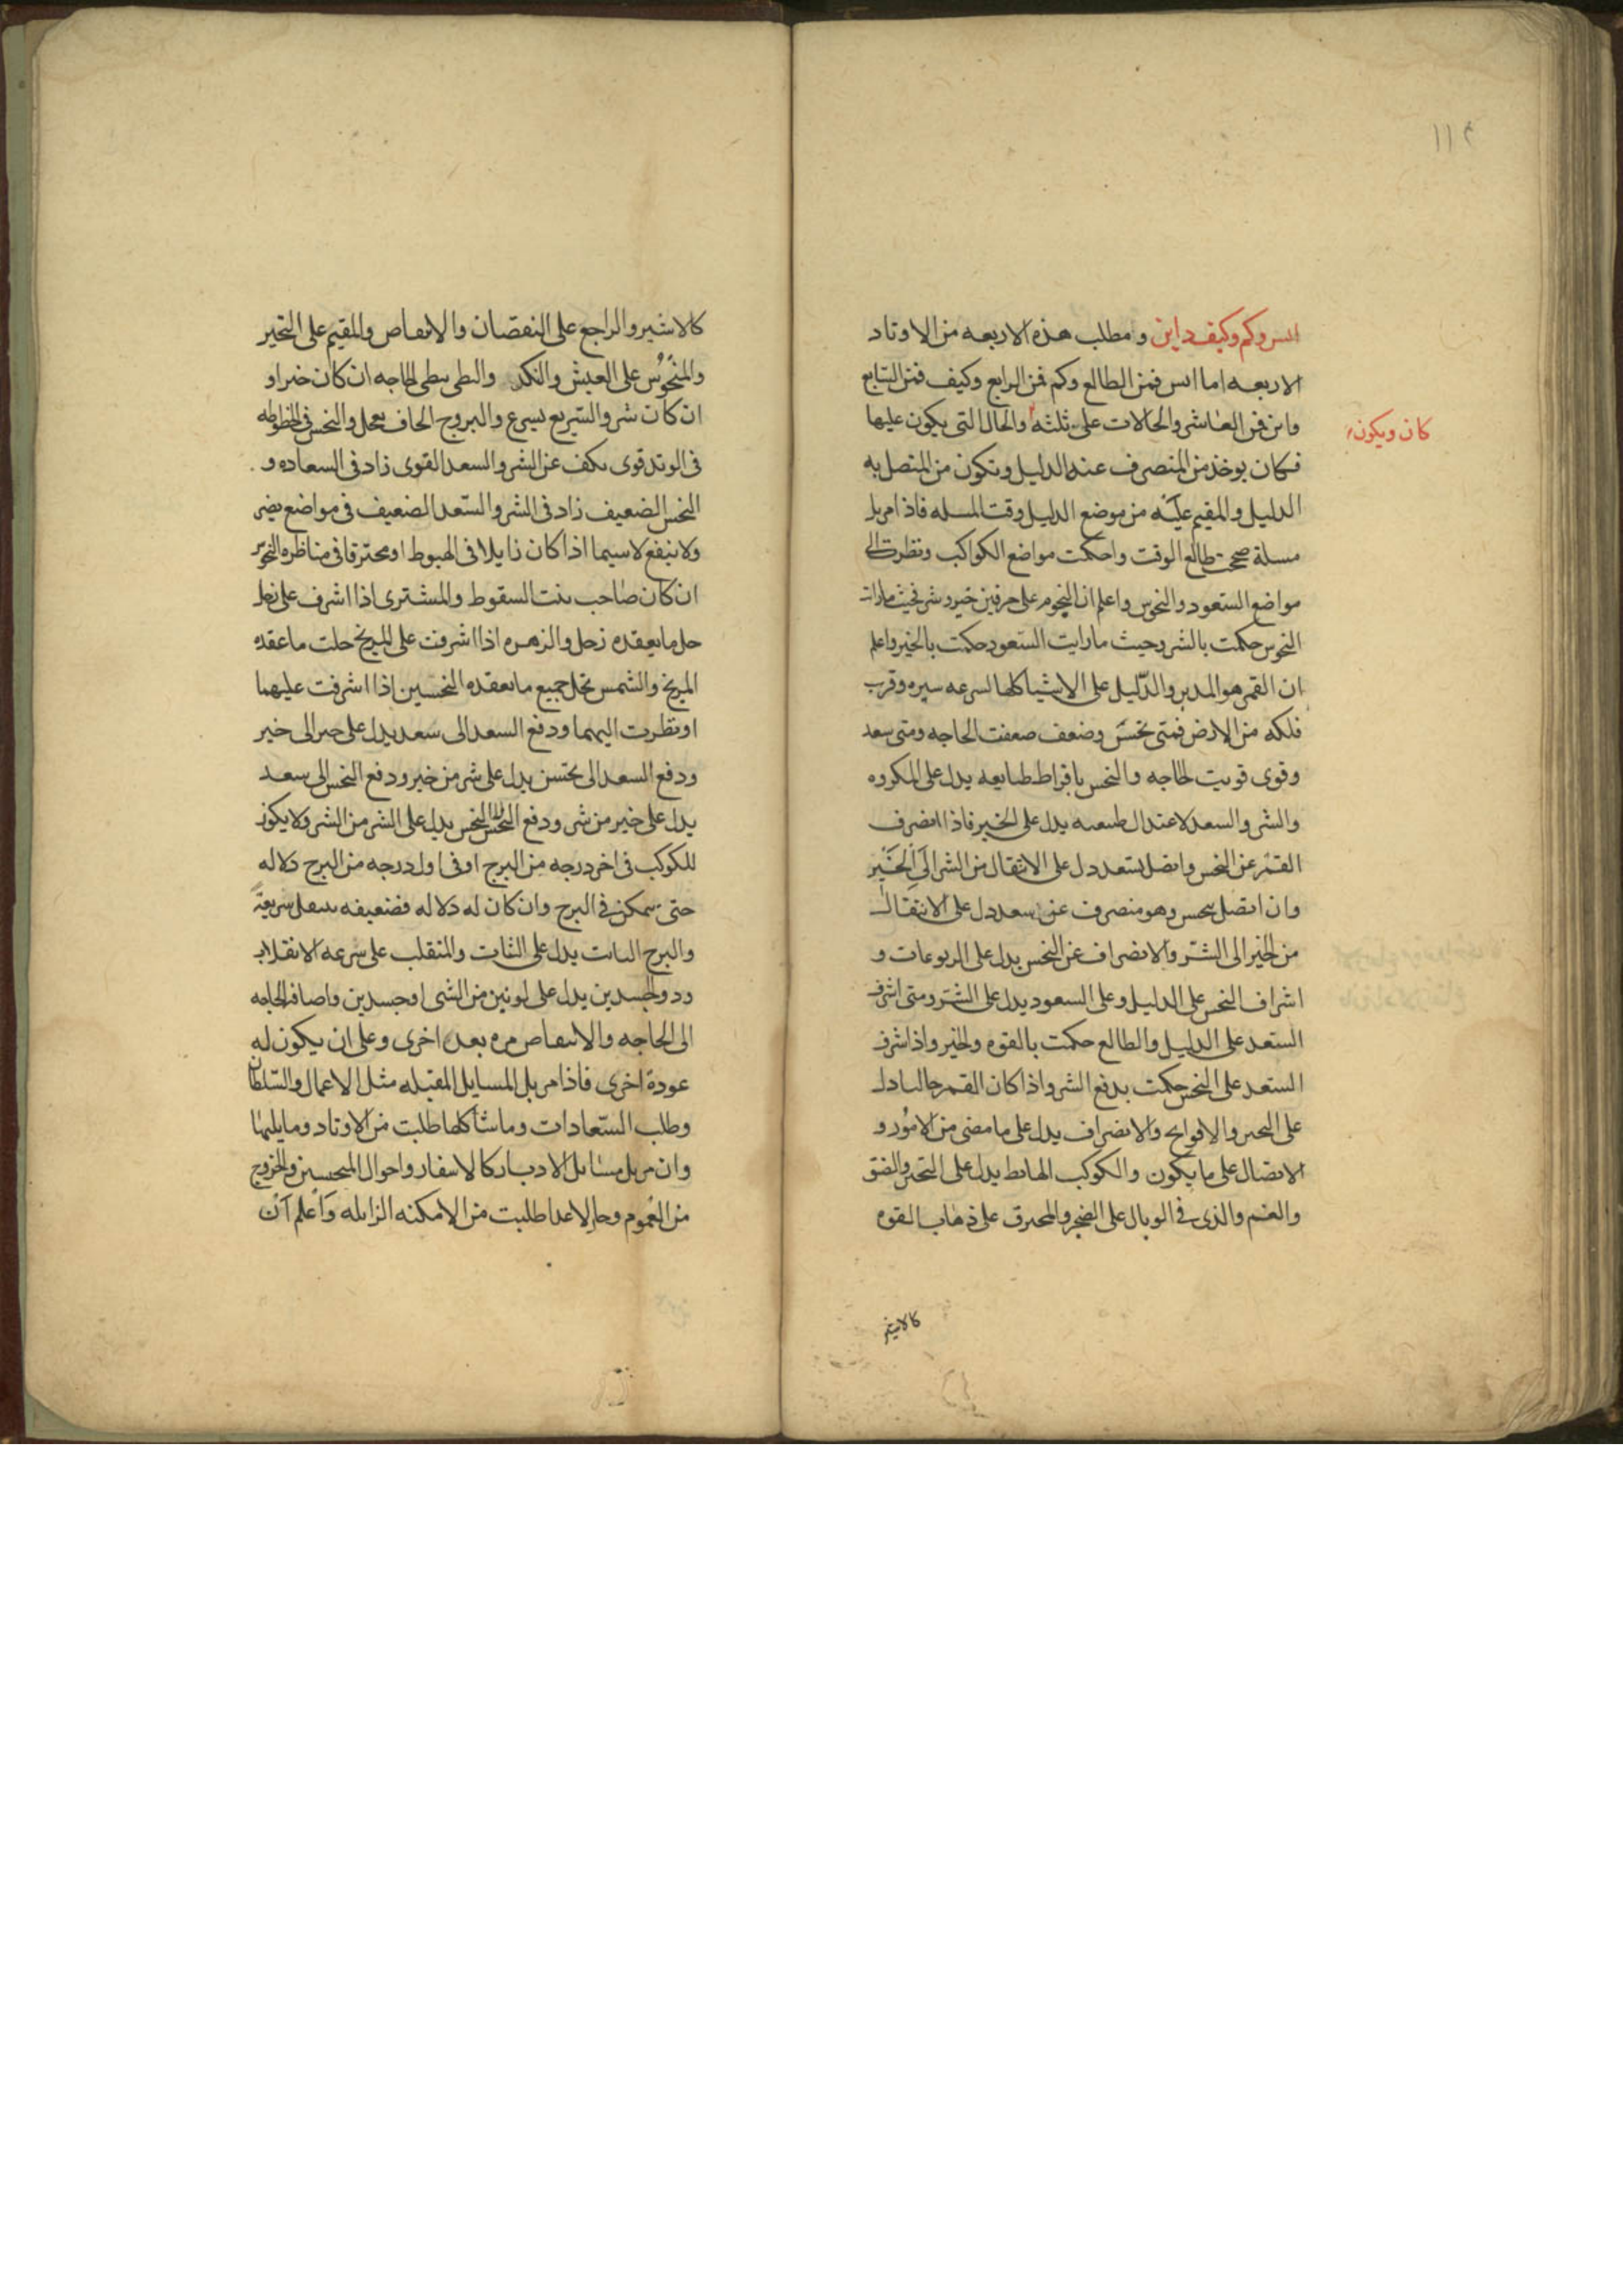 ١١٤
ايس وكم وكيف واين ومطلب هذه الاربعه من الاوتاد
الاربعه اما ايس فمن الطالع وكم فمن الرابع وكيف فمن السابع
واين فمن العاشر والحالات على ثلثه والحال التي يكون عليها
كان ويكون
فكان يوخذ من المنصرف عنه الدليل ويكون من المتصل به
الدليل والمقيم عليه من موضع الدليل وقت المسله فاذا مر بك
مسلة صححت طالع الوقت واحكمت مواضع الكواكب ونظرت الى
مواضع السعود والنحوس واعلم ان النجوم على حرفين خير وشر فحيث مارايت
النحوس حكمت بالشر وحيث مارايت السعود حكمت بالخير واعلم
ان القمر هو المدبر والدليل على الاشيا كلها لسرعه سيره وقرب
فلكه من الارض فمتى نحس وضعف ضعفت الحاجه ومتى سعد
وقوى قويت الحاجه والنحس بافراط طبايعه يدل على المكروه
والشر والسعد لاعتدال طبيعته يدل على الخير فاذا انصرف
القمر عن النحس واتصل بسعد دل على الانتقال من الشر الى الخير
وان اتصل بنحس وهو منصرف عن سعد دل على الانتقال
من الخير الى الشر والانصراف عن النحس يدل على الربوعات و
اشراف النحس على الدليل وعلى السعود يدل على الشر ومتى اشرف
السعد على الدليل والطالع حكمت بالقوه والخير واذا شرف
السعد على النحس حكمت بدفع الشر واذا كان القمر خاليا دل
على التحير والانصراف يدل على ما مضى من الامور و
الاتصال على ما يكون والكوكب الهابط يدل على التحير والضيق
والغم والذي في الوبال على الضجر والمحترق على ذهاب القوه
كالاسير
كالاسير والراجع على النقصان والانتقاص والمقيم على التحير
والمنحوس على العيش والنكد والبطى يبطى الحاجه ان كان خيرا و
ان كان شر والسريع يسرع والبروج الجاف يعجل والنحس في الخطوطه
في الوتد قوى يكف عن الشر والسعد القوى زاد في السعاده و
النحس الضعيف زاد في الشر والسعد الضعيف في مواضع يضر
ولا ينفع لاسيما اذا كان زايلا في الهبوط او محترقا في مناظره النحوس
ان كان صاحب بيت السقوط والمشترى اذا اشرف على زحل
حل ما يعقده زحل والزهره اذا اشرفت على المريخ حلت ما عقده
المريخ والشمس تحل جميع ما يعقده النحسين اذا اشرفت عليهما
او نظرت اليهما ودفع السعد الى سعد يدل على خير الى خير
ودفع السعد الى نحس يدل على شر من خير ودفع النحس الى سعد
يدل على خير من شر ودفع النحس الى النحس يدل على الشر من الشر ولا يكون
للكوكب في اخر درجه من البرج او في اول درجه من البرج دلاله
حتى يتمكن في البرج وان كان له دلاله فضعيفه تنتقل سريعة
والبرج الثابت يدل على الثبات والمنقلب على سرعه الانقلاب
وذو الجسدين يدل على لونين من الشى او جسدين واضافه الحاجه
الى الحاجه والانتقاص مره بعد اخرى وعلى ان يكون له
عودة اخرى فاذا مر بك المسايل المقبله مثل الاعمال والسلطان
وطلب السعادات وما شاكلها طلبت من الاوتاد وما يليها
وان مر بك مسائل الادبار كالاسفار واحوال المحبسين والخروج
من الغموم وحال الاعدا طلبت من الامكنه الزايله واعلم ان